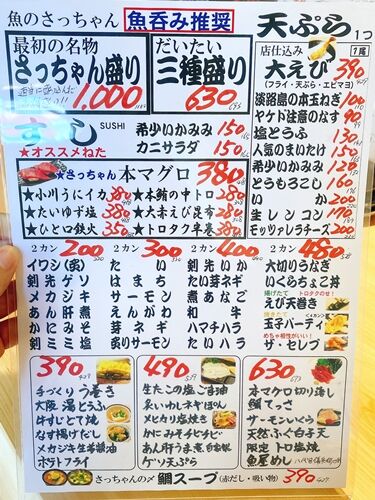 魚のさっちゃん 魚呑み推奨
最初の名物
さっちゃん盛り
1,000
だいたい
三種盛り
630 693
天ぷら 1つ
店仕込み 1尾
大えび 390 429
(フライ・天ぷら・エビマヨ)
淡路島の本玉ねぎ 100 110
ヤケド注意のなす 90
塩とうふ 130
人気のまいたけ 150
希少いかみみ 120
とうもろこし 160
いか 200
生レンコン 170
モッツァレラチーズ 200
すし SUSHI
★オススメねた
希少いかみみ 150 165
カニサラダ 150 165
★さっちゃん 本マグロ 380
★小川うにイカ 380
★たいゆず塩 380
★ひとロ鉄火 350
★本鮪の中トロ 280
★大赤えび昆布 280
★トロタク早巻 380
2カン 200
イワシ(炙)
剣先ゲソ
メカジキ
あん肝煮
かにみそ
剣ミミ塩
2カン 300
たい
はまち
サーモン
えんがわ
芽ネギ
炙りサーモン
2カン 400
剣先いか
たい芽ネギ
煮あなご
和牛
ハマチハラ
たいハラ
2カン 480
大切りうなぎ
いくらちょこ丼
揚げたて トロタクのせ!
えび天巻き
焼きたて
玉子パーティ
めちゃ相性がいい!
ザ・セレブ
390 429
手づくり う巻き
大阪 湯とうふ
牛すじとて焼
なす揚げだし
メカジキ生姜醤油
ポテトフライ
490 539
生たこの塩ごま油
炙いわしネギぽん
メヒカリ塩焼き
かにみそチビチビ
あん肝うま煮
ゲソ天ぷら
630 693
本マグロ切り落し
鯛てっさ
サーモンいくら
天然ふぐ白子天
限定 トロ塩焼
魚屋めし
さっちゃんの〆 鯛スープ (赤だし・吸い物) 390 429